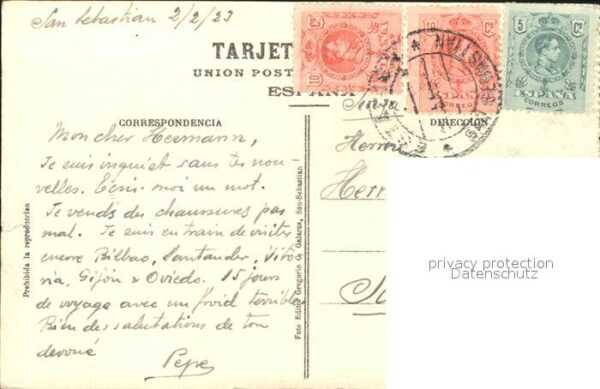 San Sebastian 2/2/23
TARJET
UNION POST
ESPAÑA
CORRESPONDENCIA
DIRECCION
Mon cher Hermann,
Je suis inquiet sans tes nou-
velles. Ecris-moi un mot.
Je vends des chaussures pas
mal. Je suis en train de visiter
encore Bilbao, Santander, Vito-
ria, Gijón & Oviedo. 15 jours
de voyage avec un froid terrible.
Bien des salutations de ton
devoué
Pepe
Prohibida la reproduccion
Foto Editor Gregorio G. Galarza, San-Sebastian
10
ESPAÑA
10 Cs
ESPAÑA
5 Cs
ESPAÑA
CORREOS
SEBASTIAN
Herrn
Her
privacy protection
Datenschutz